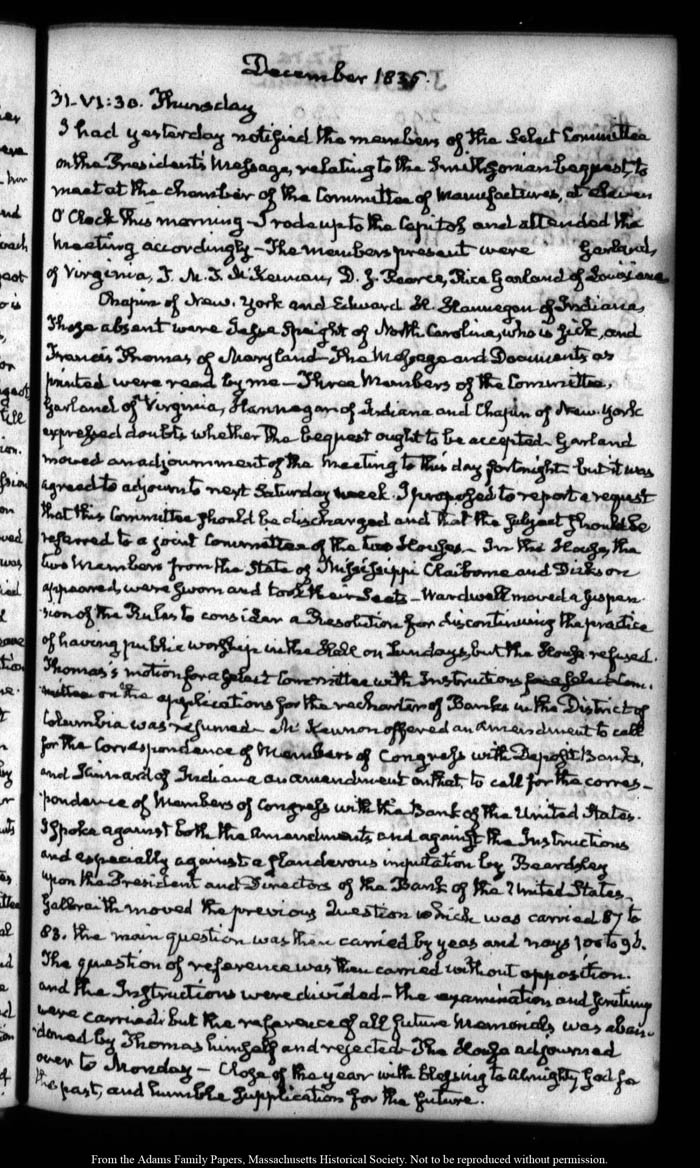 December 1835.
31. VI:30. Thursday
I had yesterday notified the members of the Select Committee
on the President's Message, relating to the Smithsonian bequest, to
meet at the chamber of the Committee of Manufactures, at eleven
O'Clock this morning - I rode up to the Capitol and attended the
meeting accordingly - The members present were Garland,
of Virginia, J. M. T. McKennan, D. J. Pearce, Rice Garland of Louisiana
Chapin of New-York and Edward A. Hannegan of Indiana,
Those absent were Jesse Speight of North Carolina, who is sick, and
Francis Thomas of Maryland - The Message and Documents as
printed were read by me - Three Members of the Committee,
Garland of Virginia, Hannegan of Indiana and Chapin of New-York
expressed doubts whether the bequest ought to be accepted - Garland
moved an adjournment of the meeting to this day fortnight but it was
agreed to adjourn to next Saturday week. I proposed to report a request
that this Committee should be discharged and that the subject should be
referred to a joint Committee of the two Houses - In the House, the
two Members from the State of Mississippi Claiborne and Dickson
appeared, were sworn and took their seats - Wardwell moved a suspen-
sion of the Rules to consider a Resolution for discontinuing the practice
of having public worship in the Hall on Sundays, but the House refused.
Thomas's motion for a Select Committee with Instructions
on the applications for the recharter of Banks in the District of
Columbia was resumed - McKennon offered an amendment to call
for the Correspondence of Members of Congress with Deposit Banks,
and Kinnard of Indiana an amendment on that, to call for the corres-
pondence of Members of Congress with the Bank of the United States.
I spoke against both the Amendments and against the Instructions
and especially against a slanderous imputation by Beardsley
upon the President and Directors of the Bank of the United States.
Galbraith moved the previous Question which was carried 87 to
83. the main question was then carried by yeas and nays 106 to 96.
The question of reference was then carried without opposition.
and the Instructions were divided - the examination and scrutiny
were carried; but the reference of all future Memorials was aban-
doned by Thomas himself and rejected - The House adjourned
over to Monday - Close of the year with blessing to Almighty God for
the past, and humble supplication for the future.
From the Adams Family Papers, Massachusetts Historical Society. Not to be reproduced without permission.